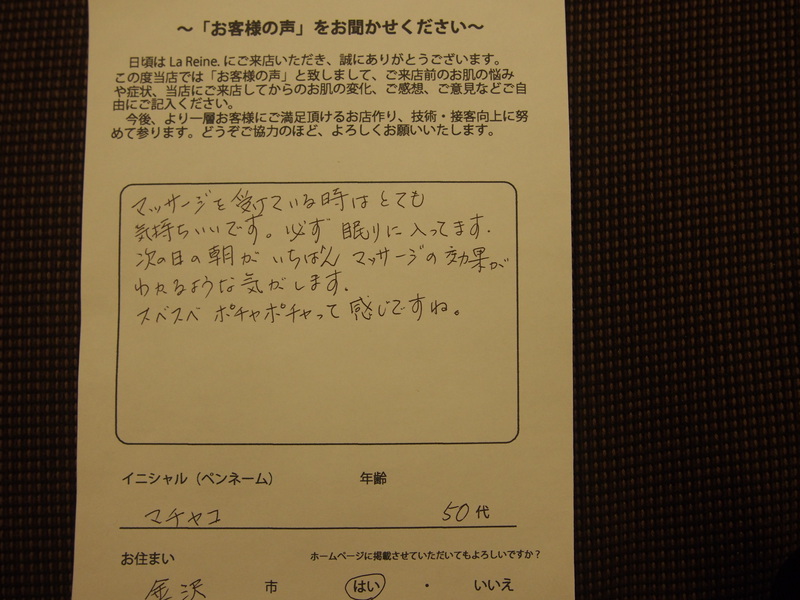 ～「お客様の声」をお聞かせください～
日頃は La Reine. にご来店いただき、誠にありがとうございます。
この度当店では「お客様の声」と致しまして、ご来店前のお肌の悩み
や症状、当店にご来店してからのお肌の変化、ご感想、ご意見などご自
由にご記入ください。
今後、より一層お客様にご満足頂けるお店作り、技術・接客向上に努
めて参ります。どうぞご協力のほど、よろしくお願いいたします。
マッサージを受けている時はとても
気持ちいいです。必ず眠りに入ってます.
次の日の朝がいちばんマッサージの効果が
わかるような気がします.
スベスベ ポチャポチャって感じですね。
イニシャル（ペンネーム） 年齢
マチャコ 50代
お住まい ホームページに掲載させていただいてもよろしいですか？
金沢 市 はい ・ いいえ